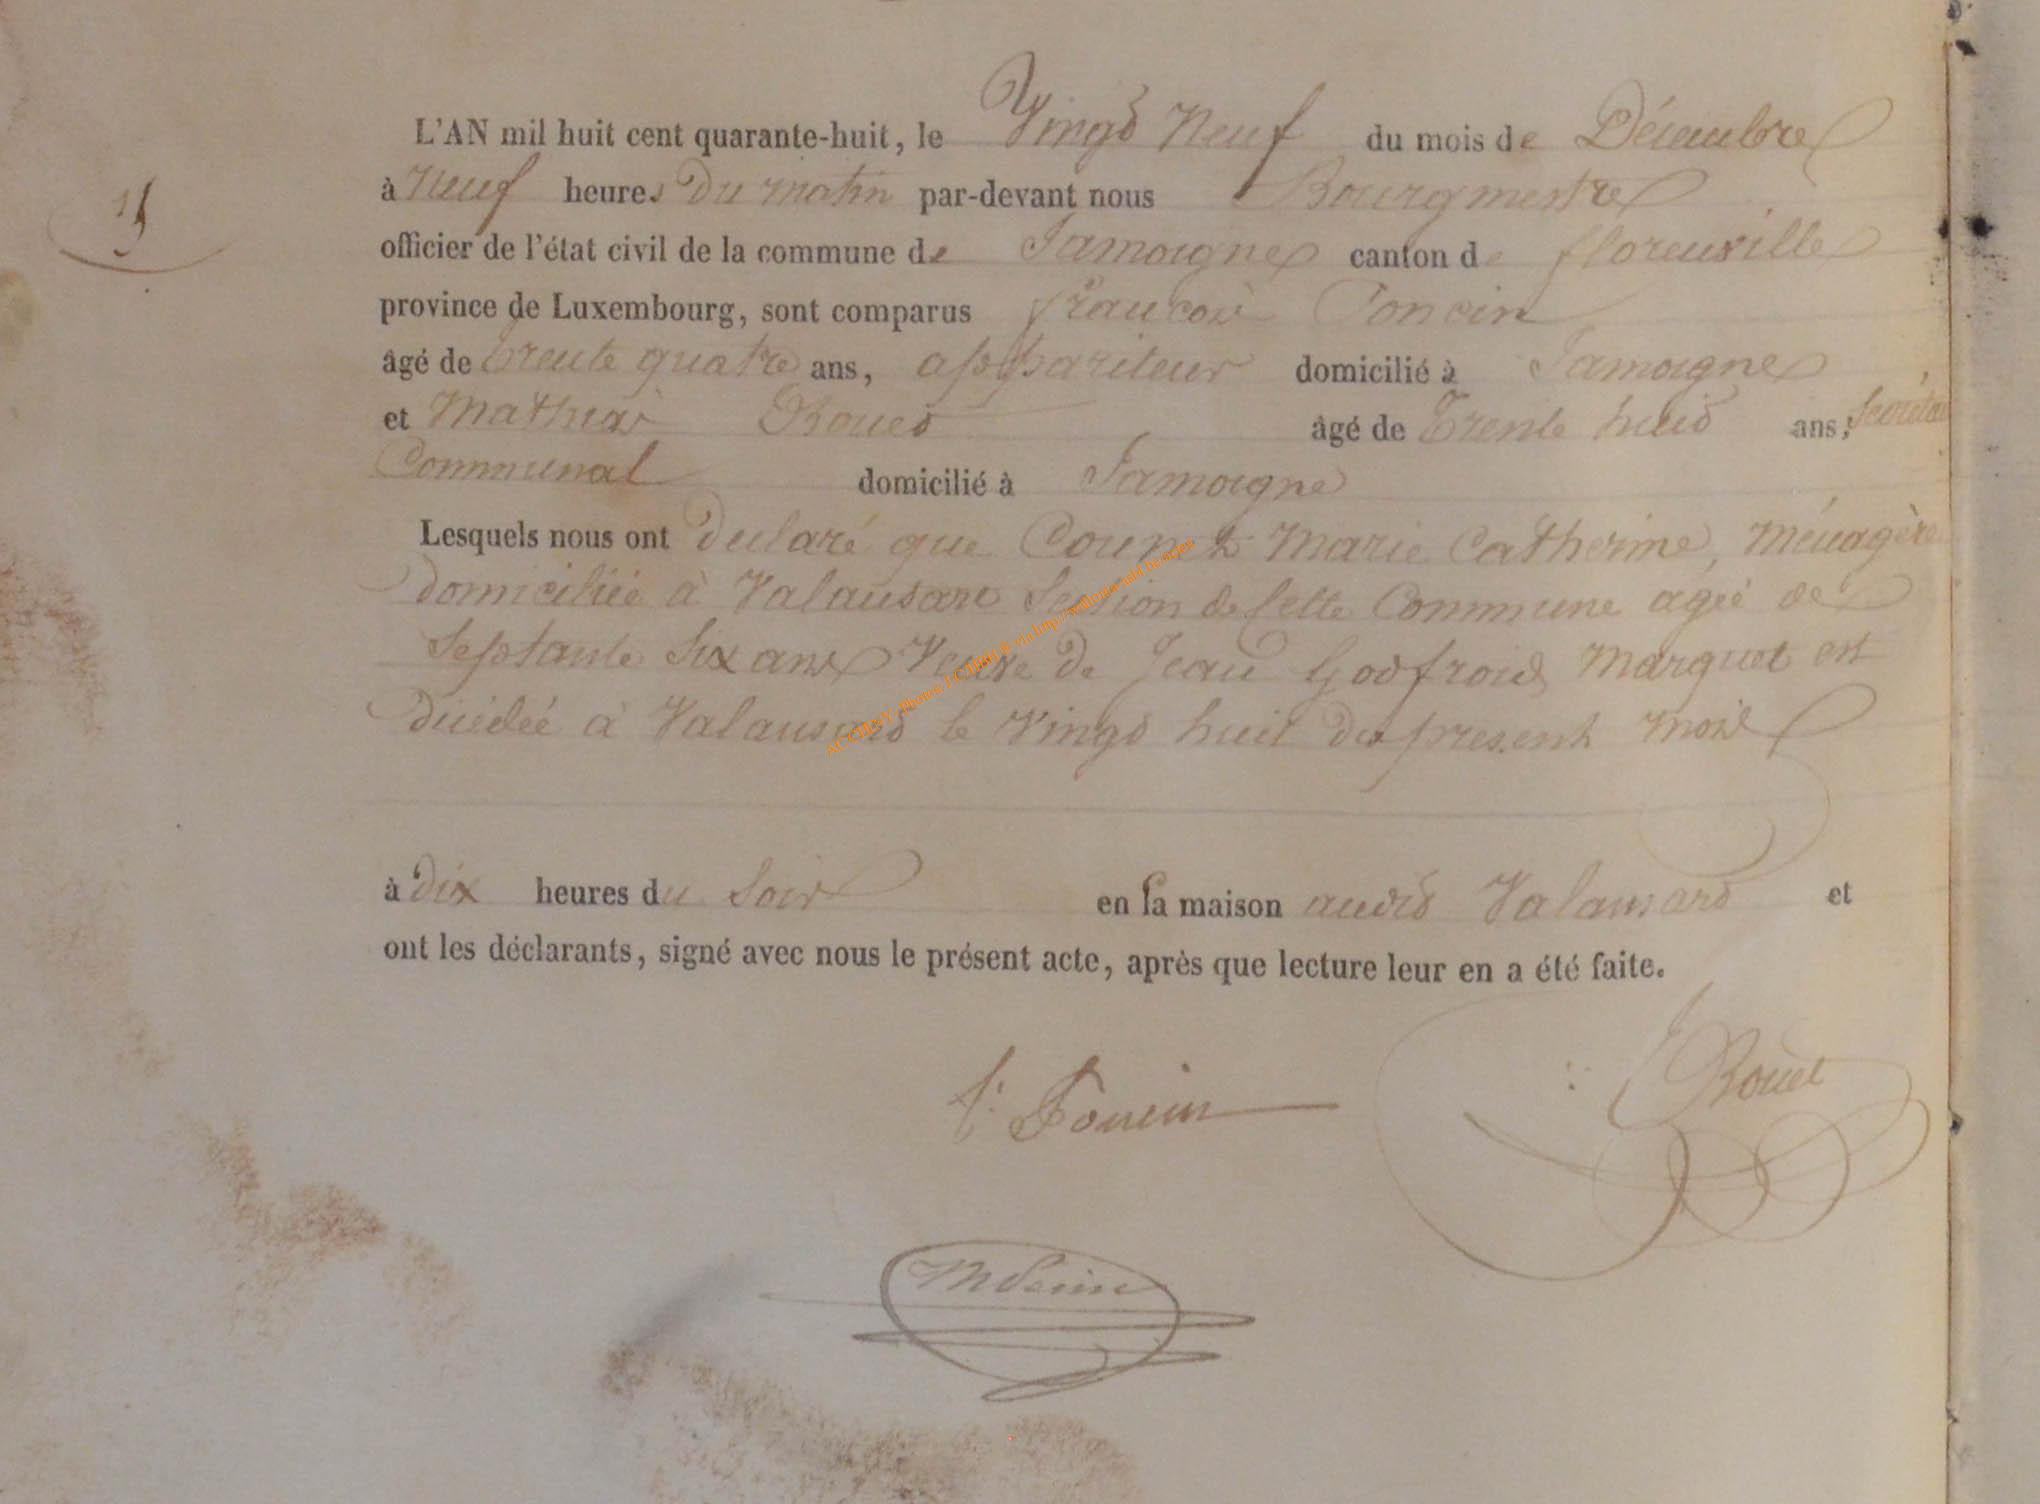 L'AN mil huit cent quarante-huit, le Vingt Neuf du mois de Décembre
15
à Neuf heures du matin par-devant nous Bourgmestre
officier de l'état civil de la commune de Jamoigne canton de florenville
province de Luxembourg, sont comparus françois Poncin
âgé de trente quatre ans, appariteur domicilié à Jamoigne
et Mathias Rouet âgé de Trente huit ans, Secrétai
Communal domicilié à Jamoigne
Lesquels nous ont déclaré que Marie Catherine, Ménagère
domiciliée à Valansart Section de Cette Commune agée de
Septante Six ans Veuve de Jean Godfroid Marquet est
décédée à Valansart le Vingt huit du present mois
à dix heures du Soir en sa maison audit Valansart et
ont les déclarants, signé avec nous le présent acte, après que lecture leur en a été faite.
f. Poncin
Rouet